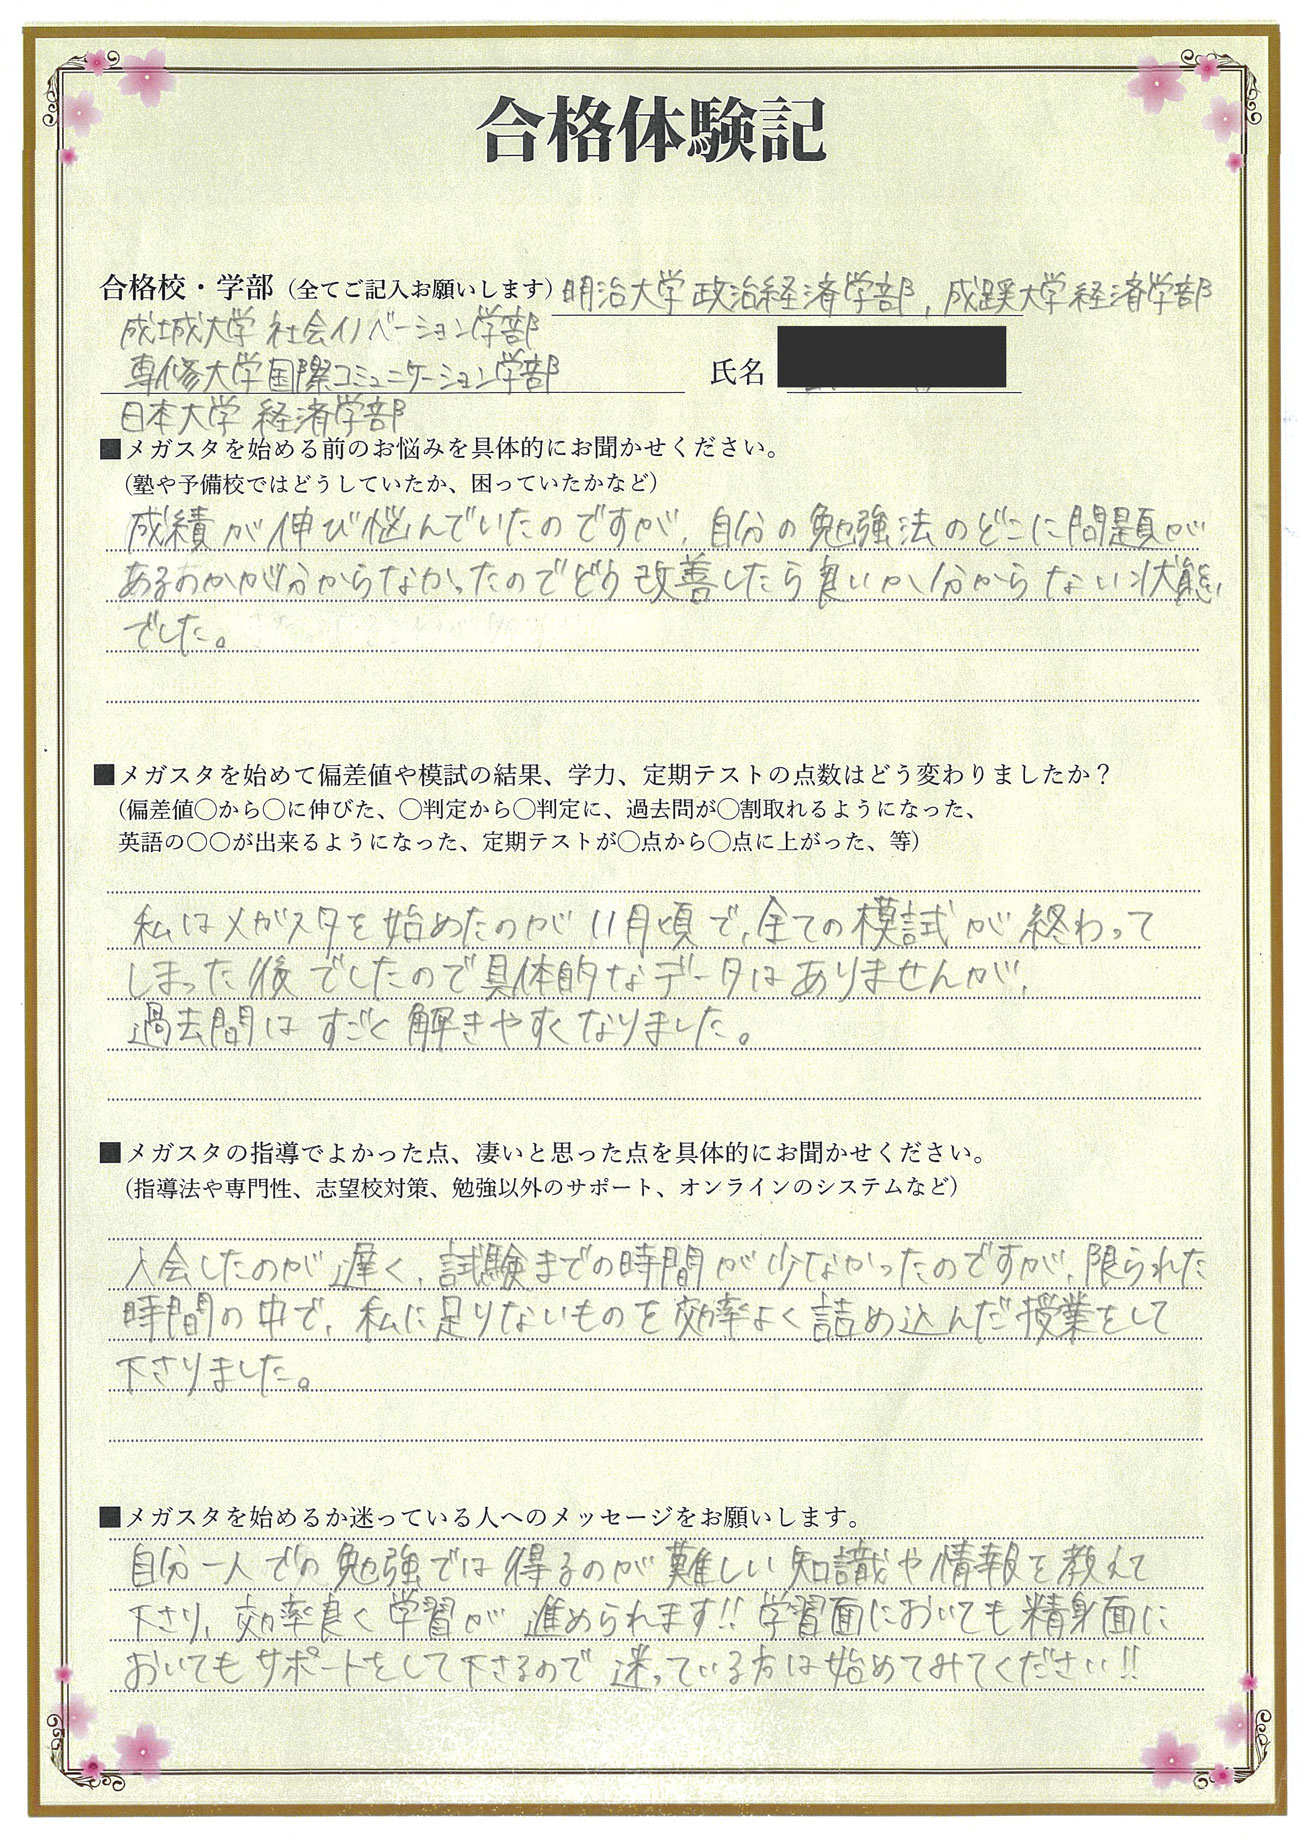 合格体験記
合格校・学部（全てご記入お願いします）明治大学 政治経済学部, 成蹊大学 経済学部
成城大学 社会イノベーション学部
専修大学国際コミュニケーション学部
氏名
日本大学 経済学部
■メガスタを始める前のお悩みを具体的にお聞かせください。
（塾や予備校ではどうしていたか、困っていたかなど）
成績が伸び悩んでいたのですが、自分の勉強法のどこに問題が
あるおかが分からなかったのでどう改善したら良いか分からない状態
でした。
■メガスタを始めて偏差値や模試の結果、学力、定期テストの点数はどう変わりましたか？
（偏差値〇から〇に伸びた、〇判定から〇判定に、過去問が〇割取れるようになった、
英語の〇〇が出来るようになった、定期テストが〇点から〇点に上がった、等）
私はメガスタを始めたのが11月頃で、全ての模試が終わって
しまった後でしたので具体的なデータはありませんが、
過去問はすごく解きやすくなりました。
■メガスタの指導でよかった点、凄いと思った点を具体的にお聞かせください。
（指導法や専門性、志望校対策、勉強以外のサポート、オンラインのシステムなど）
入会したのが遅く、試験までの時間が少なかったのですが、限られた
時間の中で、私に足りないものを効率よく詰め込んだ授業をして
下さりました。
■メガスタを始めるか迷っている人へのメッセージをお願いします。
自分一人での勉強では得るのが難しい知識や情報を教えて
下さり、効率良く学習が進められます!!学習面においても精身面に
おいてもサポートをして下さるので迷っている方は始めてみてください!!